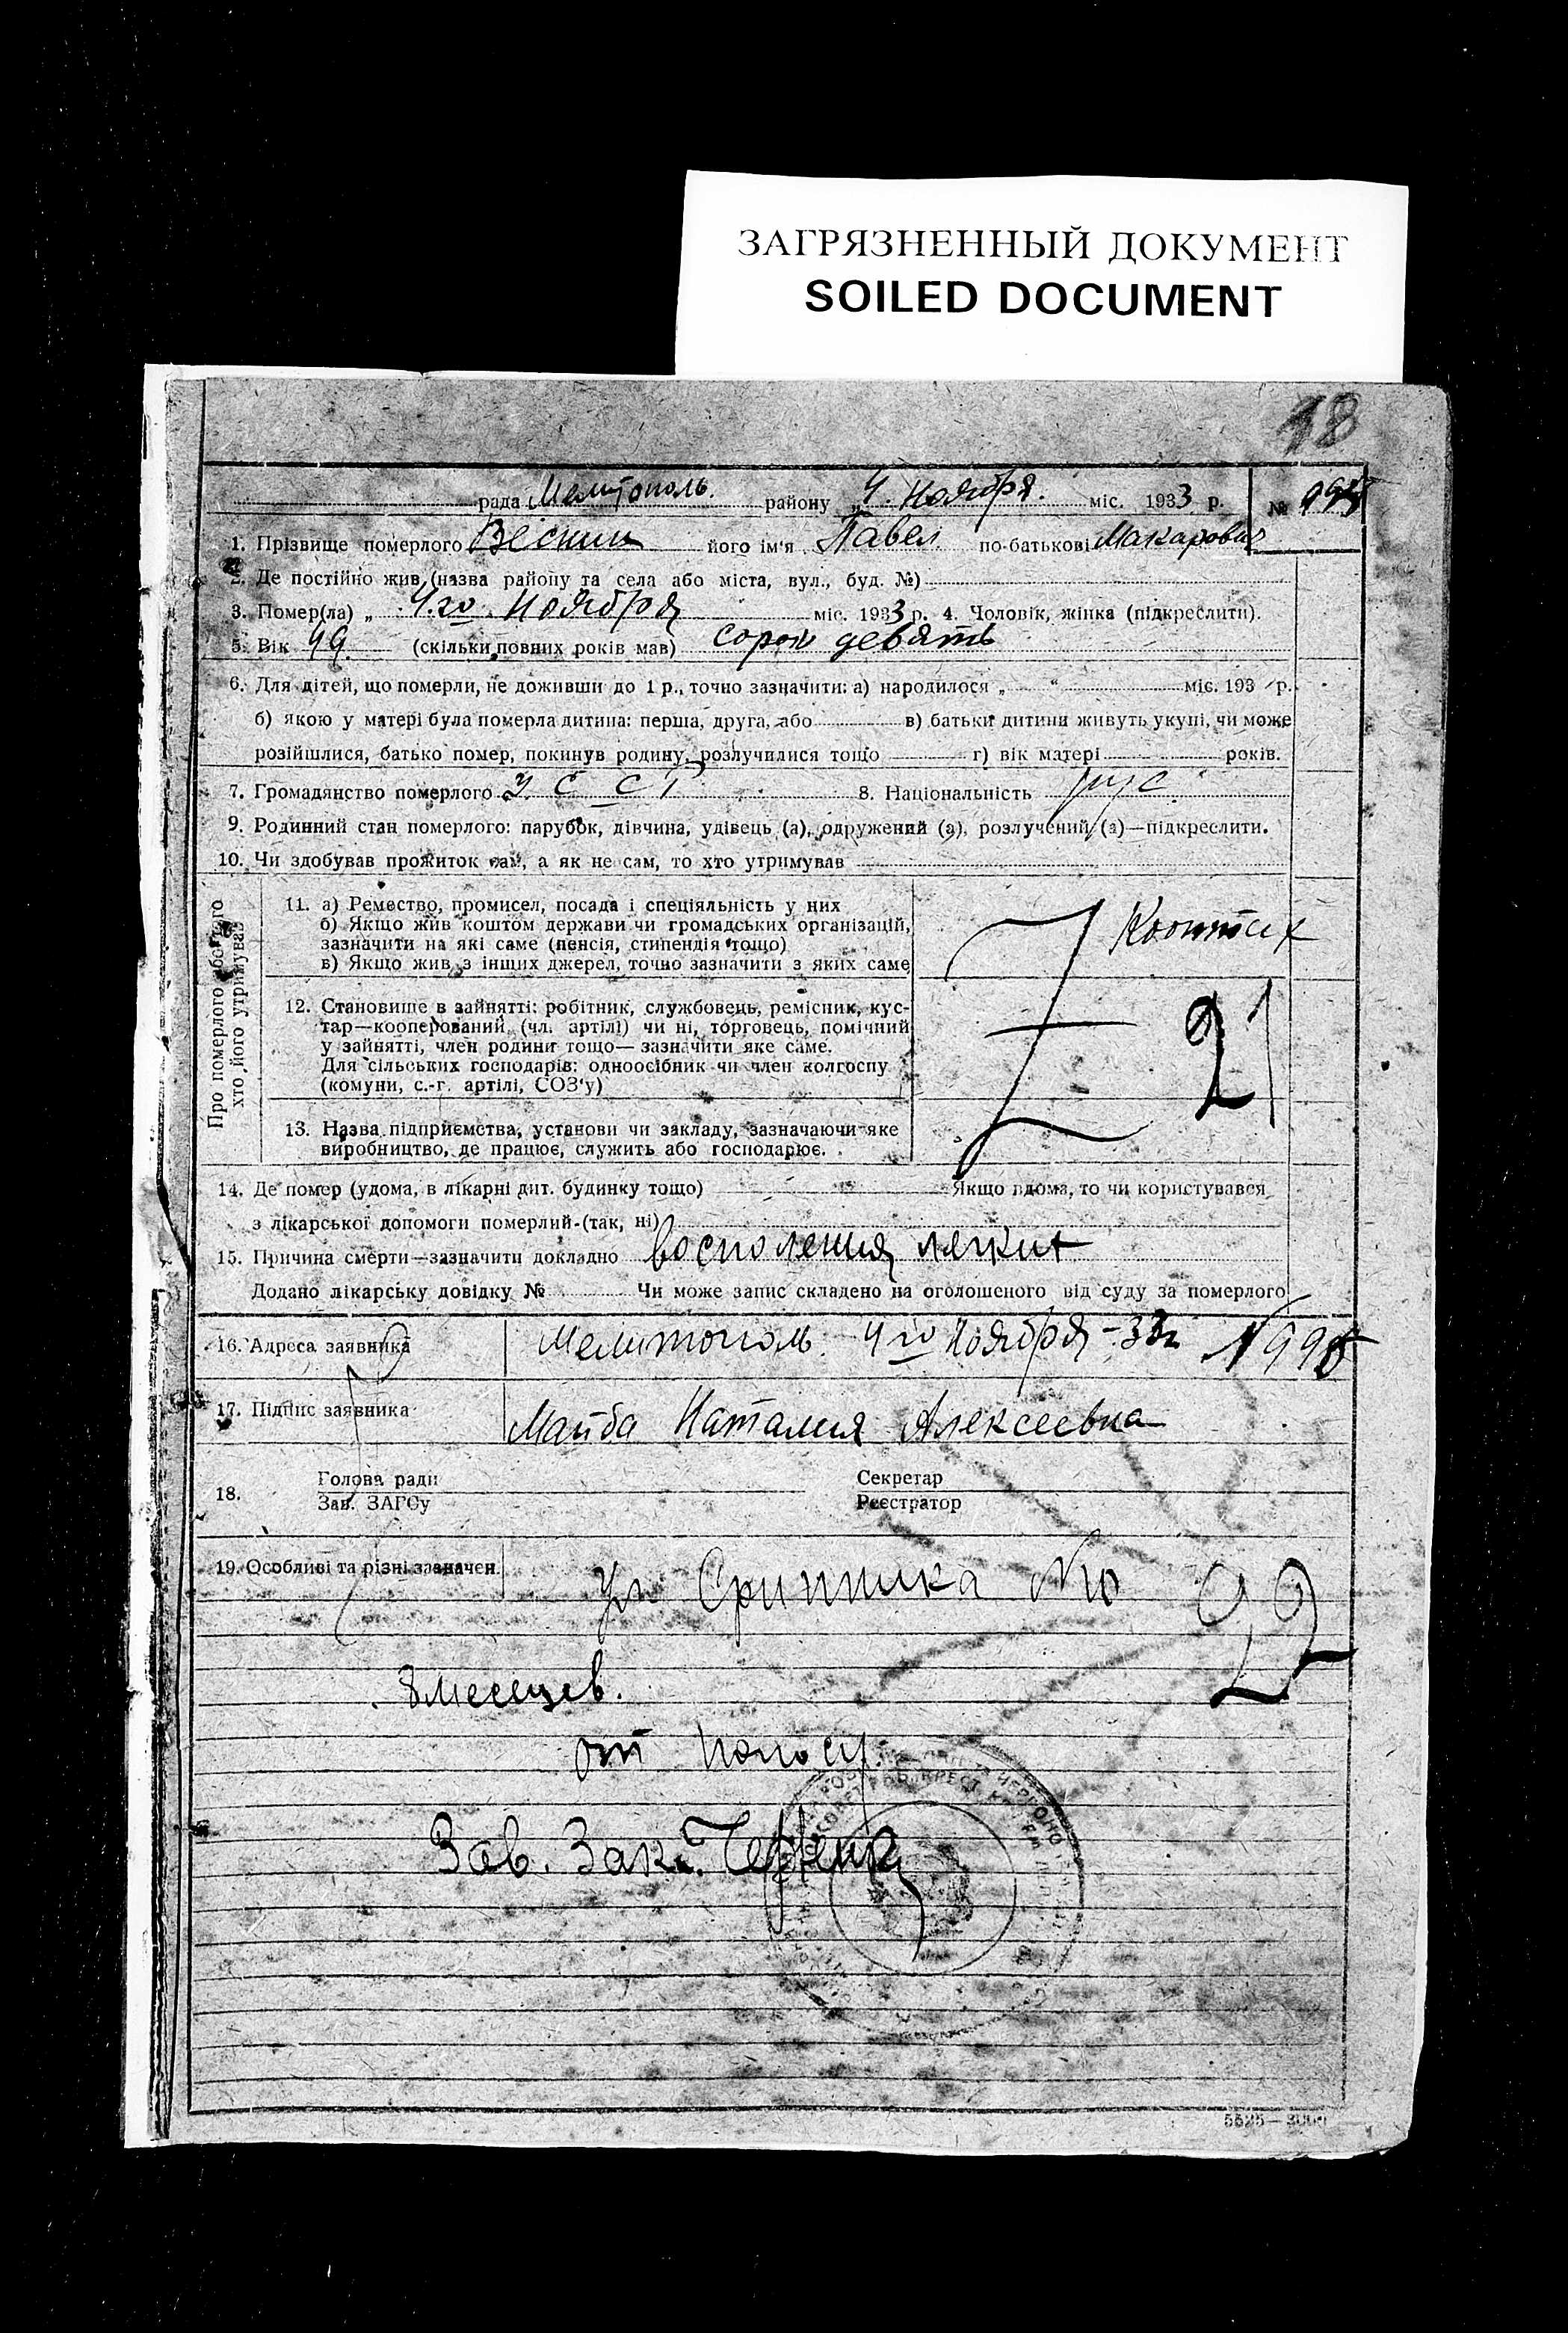 ЗАГРЯЗНЕННЫЙ ДОКУМЕНТ
SOILED DOCUMENT
18
рада Мелитополь. району „ 4. Ноября. міс. 1933 р. №
1. Прізвище померлого Веснин його ім'я Павел по-батькові Макарович
2. Де постійно жив (назва району та села або міста, вул., буд. №)
3. Помер(ла) „ 4.го Ноября міс. 1933 р. 4. Чоловік, жінка (підкреслити).
5. Вік 49. (скільки повних років мав) сорок девять
6. Для дітей, що померли, не доживши до 1 р., точно зазначити: а) народилося „ “ міс. 193 р.
б) якою у матері була померла дитина: перша, друга, або в) батьки дитини живуть укупі, чи може
розійшлися, батько помер, покинув родину, розлучилися тощо г) вік матері років.
7. Громадянство померлого У С С Р 8. Національність рус
9. Родинний стан померлого: парубок, дівчина, удівець (а), одружений (а), розлучений (а)—підкреслити.
10. Чи здобував прожиток сам, а як не сам, то хто утримував
Про померлого або того
хто його утримував
11. а) Ремество, промисел, посада і спеціяльність у них
б) Якщо жив коштом держави чи громадських організацій,
зазначити на які саме (пенсія, стипендія тощо)
в) Якщо жив з інших джерел, точно зазначити з яких саме
12. Становище в зайнятті: робітник, службовець, ремісник, кус-
тар—кооперований (чл. артілі) чи ні, торговець, помічний
у зайнятті, член родини тощо— зазначити яке саме.
Для сільських господарів: одноосібник чи член колгоспу
(комуни, с.-г. артілі, СОЗ'у)
21
13. Назва підприємства, установи чи закладу, зазначаючи яке
виробництво, де працює, служить або господарює.
14. Де помер (удома, в лікарні дит. будинку тощо) Якщо вдома, то чи користувався
з лікарської допомоги померлий-(так, ні)
15. Причина смерти—зазначити докладно восполения легких
Додано лікарську довідку № Чи може запис складено на оголошеного від суду за померлого
16. Адреса заявника Мелитополь. 4 го Ноября - 33г
17. Підпис заявника Майба Наталия Алексеевна
18. Голова ради Секретар
Зав. ЗАГСу Реєстратор
19. Особливі та різні зазначен. ул
22
8 месецев.
от поносу.
Зав.
5525—3000